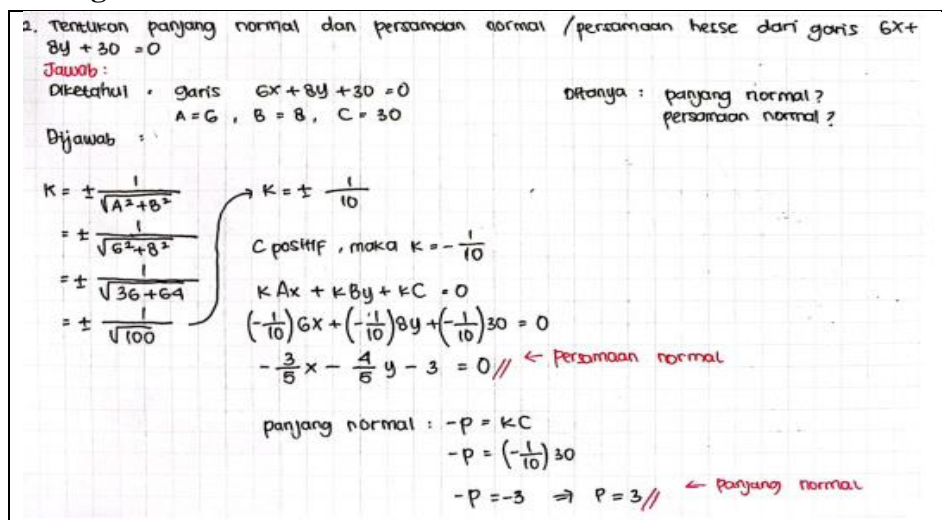 2. Tentukan panjang normal dan persamaan normal / persamaan hesse dari garis 6x +
8y + 30 = 0
Jawab :
Diketahui . garis 6x + 8y + 30 = 0
A = 6 , B = 8 , C = 30
Ditanya : panjang normal ?
persamaan normal ?
Dijawab :
K = ± 1/√(A² + B²)
= ± 1/√(6² + 8²)
= ± 1/√(36 + 64)
= ± 1/√100
K = ± 1/10
C positif , maka K = - 1/10
KAx + KBy + KC = 0
(-1/10) 6x + (-1/10) 8y + (-1/10) 30 = 0
- 3/5 x - 4/5 y - 3 = 0 // ← Persamaan normal
panjang normal : -P = KC
-P = (-1/10) 30
-P = -3 ⇒ P = 3 // ← Panjang normal